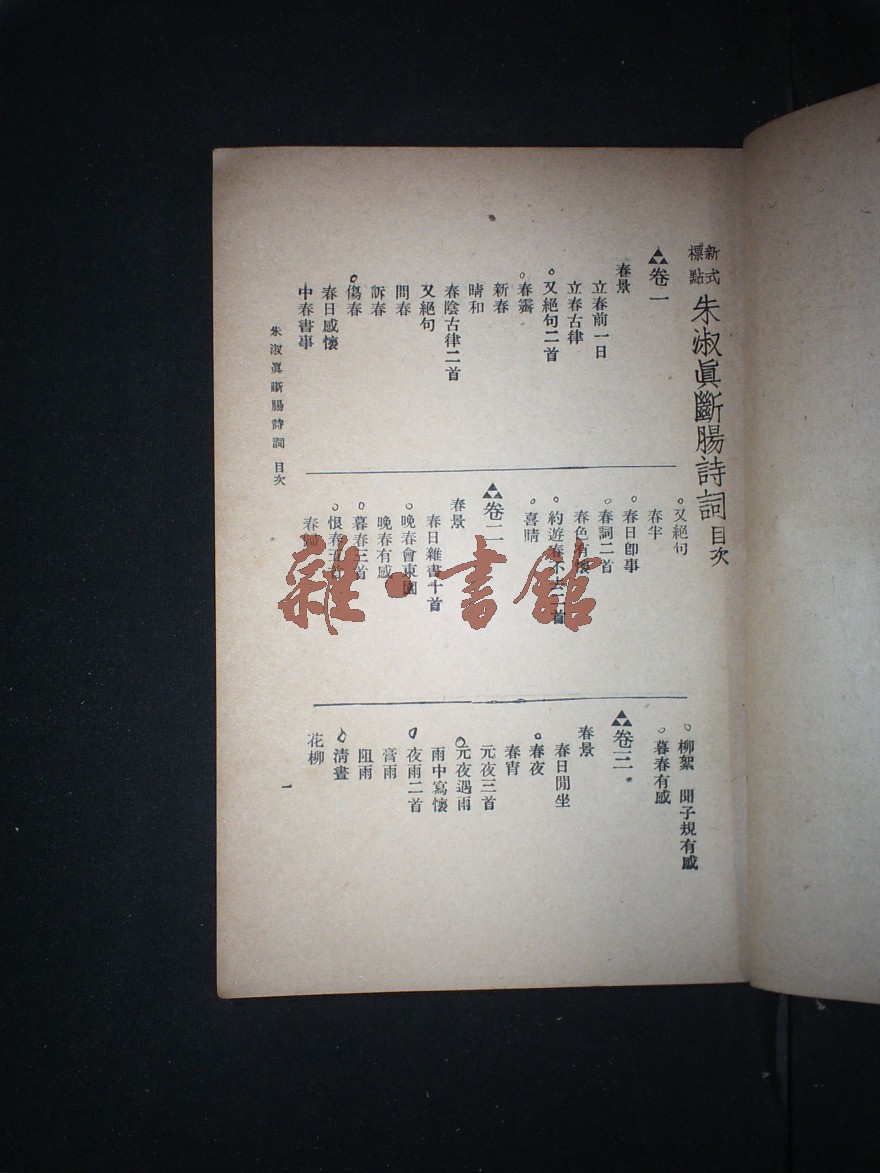 新式標點 朱淑眞斷腸詩詞 目次
卷一
春景
立春前一日
立春古律
又絕句二首
春霽
新春
晴和
春陰古律二首
又絕句
問春
訴春
傷春
春日感懷
中春書事
又絕句
春半
春日卽事
春詞二首
春色有懷
約遊春不去二首
喜晴
卷二
春景
春日雜書十首
晚春會東園
晚春有感
暮春三首
恨春五首
春歸
柳絮 聞子規有感
暮春有感
卷三
春景
春日閒坐
春夜
春宵
元夜三首
元夜遇雨
雨中寫懷
夜雨二首
膏雨
阻雨
清晝
花柳
朱淑眞斷腸詩詞 目次
一
雜·書館